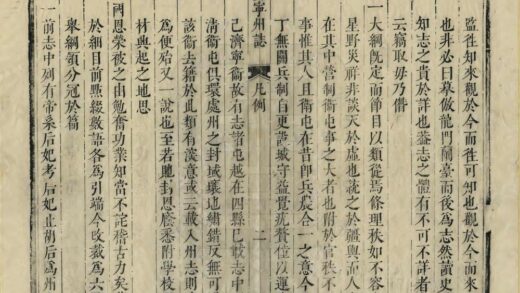 監徃知來觀於今而徃可知也觀於今而來
也非必曰摹倣龍門蘭臺而後爲志然讀史
知志之貴於詳也蓋志之體有不可不詳者
云竊取毋乃僭
一大綱旣定而節目以類從焉條理秩如不容
星野災祥非談天於虛也統之於疆輿而人
在其中營制衛屯事之大者也附於官秩不
事惟其人且衛屯在昔卽兵農合一之意今
丁無關兵制自更 城守益覺 贅位以運
寧州誌 凡例 二
已濟寧衛故有志諸屯越在四縣已載志中
淸衛屯俱環處州之封域壤地繡錯反無可
該衛去籍於此類有 意或云載入州志則
爲便殆又一說也至若貤封恩廕悉附學校
材與起之地恩
兩恩榮被之由勉奮功業知當不詫稽古力矣
於細目前點綴數語各爲引端今改裁爲六
舉綱領分冠於篇
一前志中列有帝系后妃考后妃止前后爲州